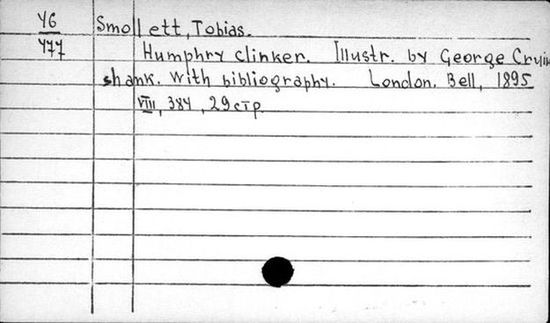 У6 Smollett, Tobias.
У77 Humphry clinker. Illustr. by George Cruik
shank. With bibliography. London. Bell, 1895
VIII, 384, 29 стр